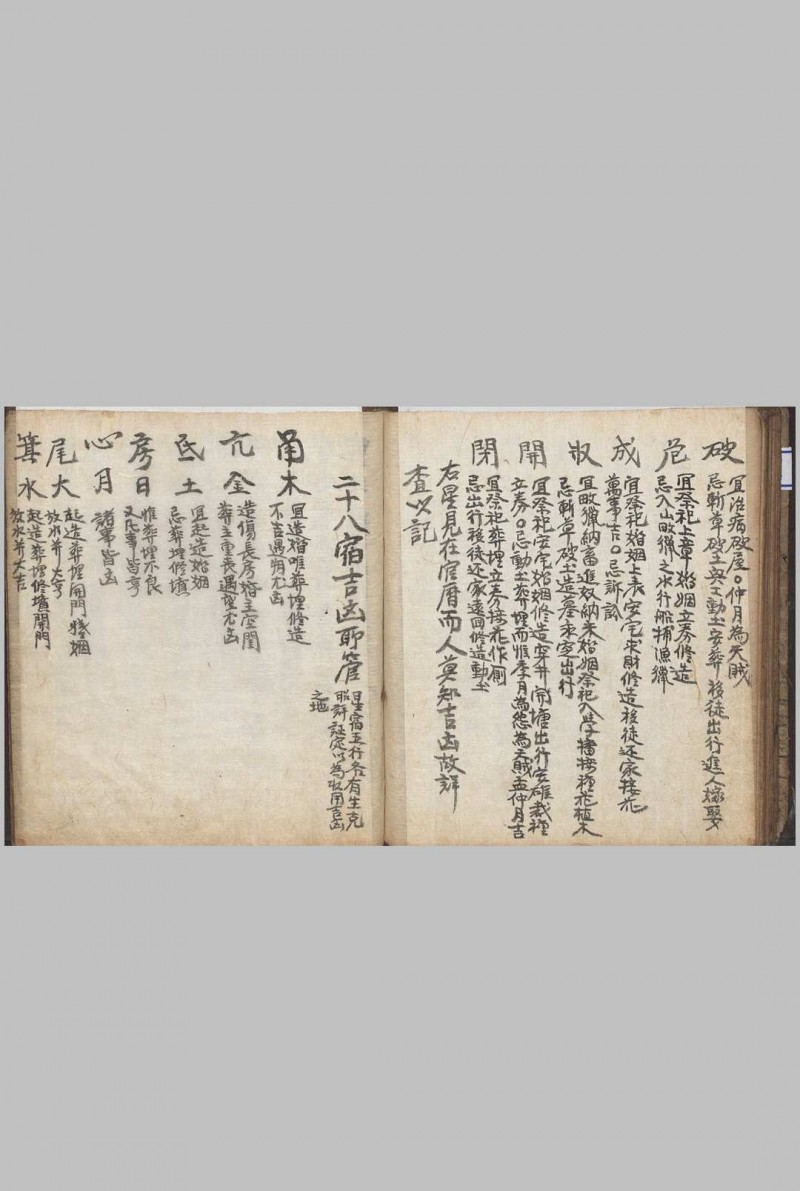 破 宜治病破屋○仲月為天賊
忌斬草破土興工動土安葬移徒出行進人嫁娶
危 宜祭祀上章婚姻立券修造
忌入山畋獵之水行船捕漁獵
成 宜祭祀婚姻上表安宅求財修造移徒还家接花
萬事吉○忌訴訟
収 宜畋獵納畜進奴納采婚姻祭祀入學播接種花植木
忌斬草破土造葬求安出行
開 宜祭祀安宅婚姻修造穿井開塘出行安碓栽種
立券○忌動土葬埋而惟季月為怨為天賊孟仲月吉
閉 宜祭祀葬埋立券接花作廁
忌出行移徒还家遠回修造動土
右星見在官曆而人莫知吉凶故詳
查以記
二十八宿吉凶所管 星宿五行各有生克
耶詳証定以為収用吉凶
之地
角木 宜造婚唯葬埋修造
不吉遇朔尤凶
亢金 造傷長房婚主空閨
葬主重喪遇望尤凶
氐土 宜起造婚姻
忌葬埋修墳
房日 惟葬埋不良
又凡事皆亨
心月 諸事皆凶
尾火 起造葬埋開門婚姻
放水并大亨
箕水 起造葬埋修墳開門
放水并大吉